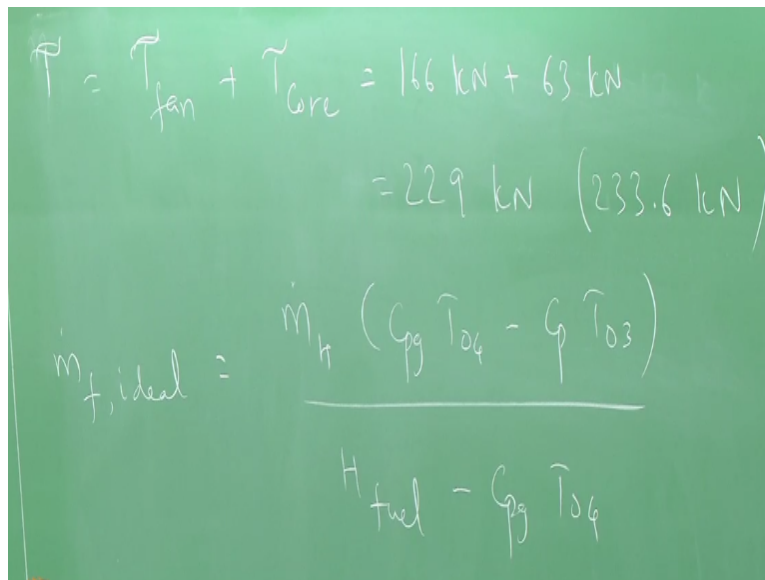 T = T_fan + T_core = 166 kN + 63 kN
= 229 kN (233.6 kN)
ṁ_f,ideal = ṁ_H (C_pg T_04 - C_p T_03)
H_fuel - C_pg T_04